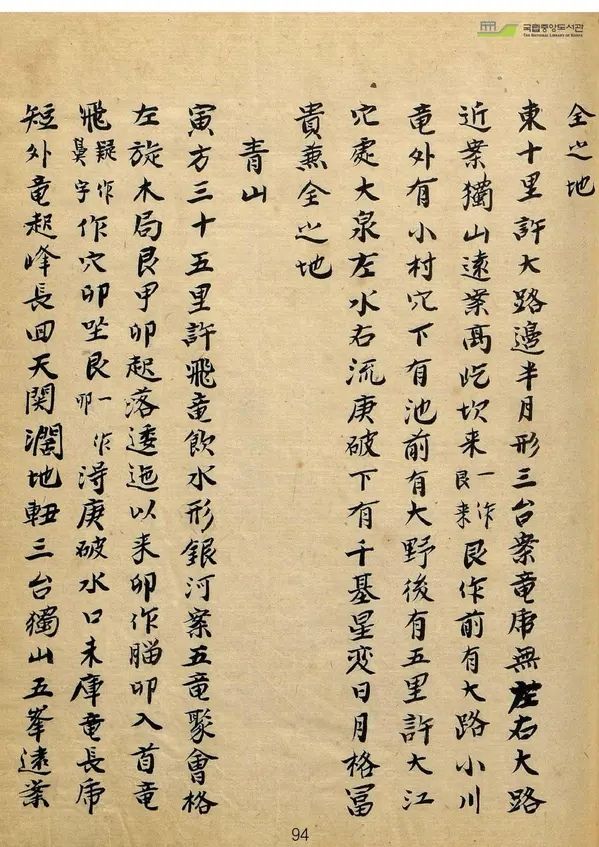 국립중앙도서관
THE NATIONAL LIBRARY OF KOREA
全之地
東十里許大路邊半月形三台案竜虎無左右大路
近案獨山遠案高屹坎来一作艮来艮作前有大路小川
竜外有小村穴下有池前有大野後有五里許大江
穴處大泉左水右流庚破下有千基星変日月格冨
貴兼全之地
青山
寅方三十五里許飛竜飲水形銀河案五竜聚會格
左旋木局艮甲卯起落逶迤以来卯作腦卯入首竜
飛疑作鼻字作穴卯坐艮一作卯淂庚破水口未庫竜長虎
短外竜起峰長回天関濶地軸三台獨山五峯遠案
94